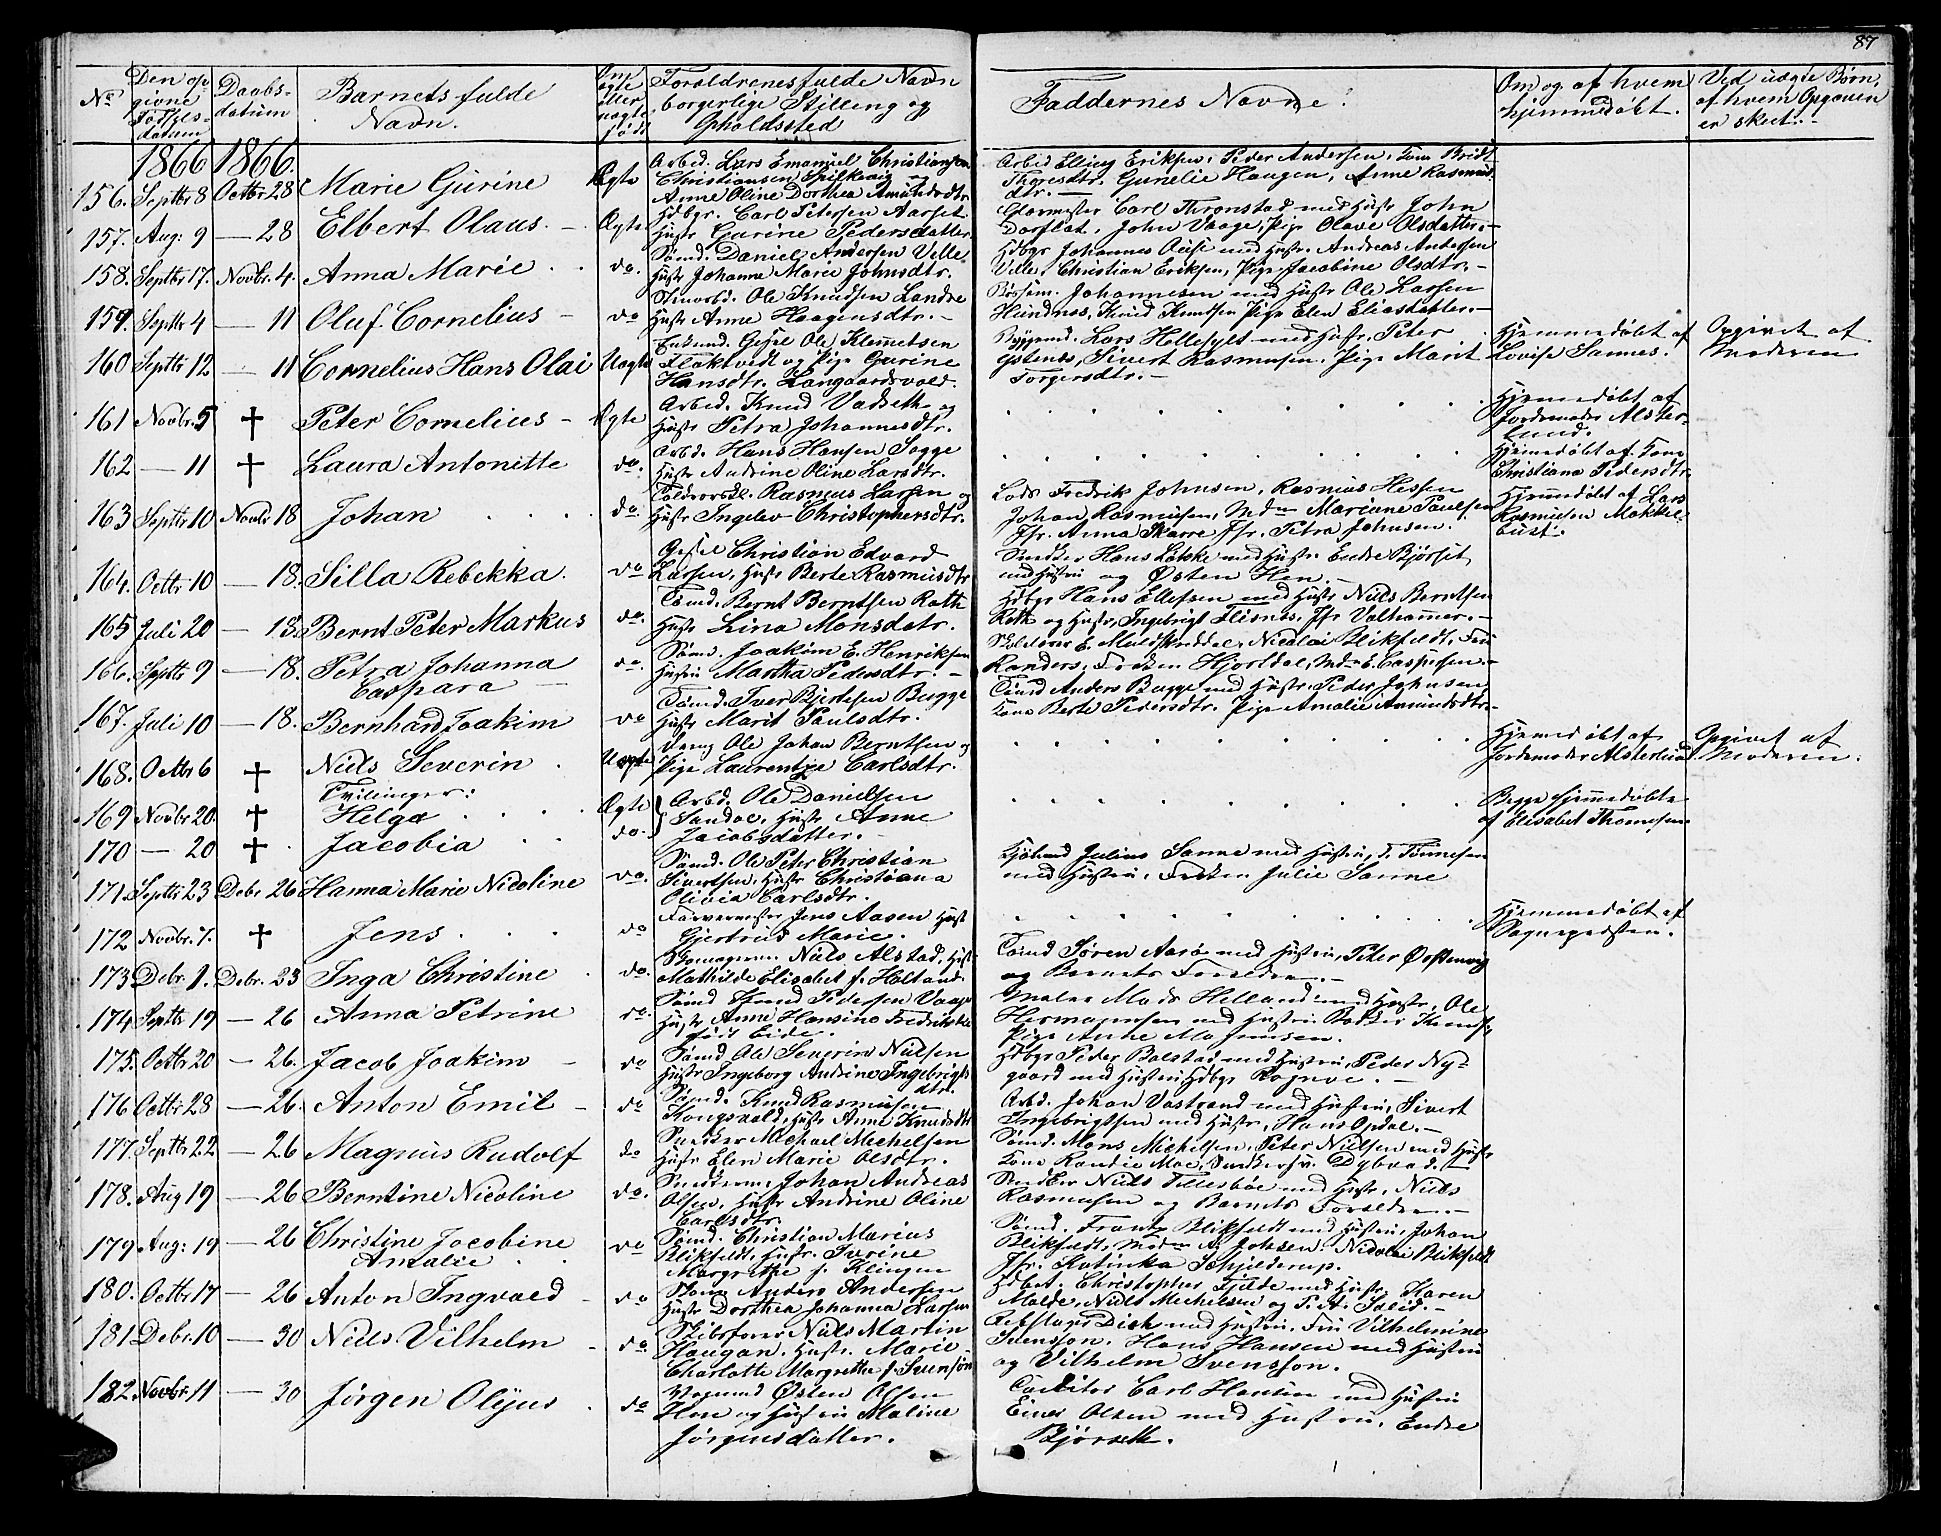 87
No
Den op-
givne
Fødsels-
datum
Daabs-
datum
Barnets fulde
Navn.
Om
ægte
eller
uægte
født
Forældrenes fulde Navn
borgerlige Stilling og
Opholdssted
Faddernes Navne.
Om og af hvem
hjemmedøbt.
Ved uægte Børn,
af hvem Opgaven
er skeet.
1866 1866.
156. Septbr 8 Octbr 28 Marie Gurine Ægte
Arbed. Lars Emanuel Christiansen
Christiansen Spilkevig og
Anne Oline Dorthea Amundsdtr.
Arbed Elling Eriksen, Peder Andersen, Kone Bridt
Thoresdtr. Gunelie Haugen, Anne Rasmus-
dtr.
157. Aug: 9 — 28 Elbert Olaus. Ægte
Hdbgr. Carl Petersen Aarset
Hustr Gurine Pedersdatter.
Glarmester Carl Thronstad med Hustr John
Dorplat, John Vaage, Pige Olave Olsdatter.
158. Septbr 17. Novbr. 4. Anna Marie do.
Sømd. Daniel Andersen Velle
Hustr Johanne Marie Johnsdtr.
Hdbgr Johannes med Hustr. Andreas Andersen
Velle, Christian Eriksen, Pige Jacobine Olsdtr.
159. Septbr 4 — 11 Oluf Cornelius do
Ole Knudsen Landre
Hustr Anne Haagensdtr.
Johannesen med Hustr Ole Larsen
Hundnes, Knud Knutsen Pige Elen Eliasdatter.
160 Septbr 12 — 11 Cornelius Hans Olai Uægte
Enkemd. Gesel Ole Klemetsen
Flaktvedt og Pige Gurine
Hansdtr. Langaardsvold.
Byggmd. Lars Hellesylt med Hustr. Peter
Ystenes, Sivert Rasmusen. Pige Marit
Torgersdtr.
Hjemmedøbt af
Lovise Sannes.
Opgivet af
Moderen
161 Novbr. 5 † Peter Cornelius Ægte
Arbed. Knud Vadseth og
Hustr Petra Johannesdtr.
Hjemmedøbt af
Jordemoder Alster-
lund.
162 — 11 † Laura Antonette do.
Arbd. Hans Hansen Sogge
Hustr Andrine Oline Larsdtr.
Hjemmedøbt af Kone
Christiana Pedersdtr
163 Septbr 10 Novbr 18 Johan do.
Rasmus Larsen og
Hustr Ingebor Christophersdtr.
Lods Fredrik Johnsen, Rasmus Hessen
Johan Rasmussen, Mdm Mariane Paulsen
Jfr. Anna Skarre Jfr. Petra Johnsen.
Hjemmedøbt af Lars
Rasmusen Mokkel-
bust.
164. Octbr 10 — 18. Silla Rebekka. do
Gesel Christian Edvard
Larsen, Hustr Berte Rasmusdtr
Hans med Hustr. Endre Bjørset
med Hustr og Østen Hen.
165 Juli 20 — 18. Bernt Peter Markus do.
Tømd. Bernt Berntsen Roth
Hustr Lina Monsdatr.
Hdbgr Hans Ellefsen med Hustr Niels Berntsen
Roth og Hustr, Ingebrigt Flisnes, Jfr Valhammer.
166. Septbr 9 — 18. Petra Johanna
Caspara do.
Sømd. Joakim E. Henriksen
Hustru Martha Pedersdtr.
Skolelærer E. Nicolai Blikfeldt, Fru
Randers, Frøken Hjortdal, Mdm E. Caspersen.
167. Juli 10 — 18. Bernhard Joakim do
Tømd. Iver Bjertesen Bugge
Hustr Marit Paulsdtr.
Tømd Anders Bugge med Hustr. Peder Johnsen
Kone Berte Pedersdtr. Pige Amalie Amundsdtr.
168. Octbr 6 † Niels Severin Uægte
Dreng Ole Johan Berntsen og
Pige Laurentze Carlsdtr.
Hjemmedøbt af
Jordemoder Alsterlund
Opgivet af
Moderen.
Tvilinger:
169 Novbr 20. † Helga Ægte
170 — 20 † Jacobia do.
Arbd. Ole Danielsen
Sandoe, Hustr Anne
Jacobsdatter.
Begge hjemmedøbte
af Elisabet Thomesen.
171. Septbr 23 Debr. 26 Hanna Marie Nicoline do.
Sømd. Ole Peter Christian
Sivertsen, Hustr Christiana
Olivia Carlsdtr.
Julius Sanne med Hustru, T. Tønnesen
med Hustru. Frøken Julie Sanne
172 Novbr. 7. † Jens do
Farvermester Jens Aasen Hust
Gjertrud Marie.
Hjemmedøbt af
Sognepresten.
173 Debr. 1. Debr. 23 Inga Christine do.
Skomagerm. Niels Alstad, Hust
Mathilde Elisabet f. Holland.
Tømd Søren Aarøe med Hustru, Peter Østenvig
og Barnets Forældre.
174 Septbr 19 — 26 Anna Petrine do.
Sømd Knud Pedersen Vaage
Hustr Anne Hansine Fredrikke
født Eide.
Maler Mads Helland med Hustr, Ole
Hermansen med Hustru
Pige Anne
175. Octbr 20 — 26. Jacob Joakim do
Tømd Ole Severin Nielsen
Hustr Ingeborg Andrine Ingebrigts
dtr.
Hdbgr Peder Bolstad med Hustru, Peder Ny-
gaard med Hustru Hdbgr Rogneve.
176 Octbr 28 — 26. Anton Emil do
Sømd. Knud Rasmusen
Kongsvold, Hustr Anne Knudsdtr
Arbd. Johan Vastrand med Hustru, Sivert
Ingebrigtsen med Hustr, Hans Opdal.
177. Septbr 22 — 26 Magnus Rudolf do
Snedker Michael Michelsen
Hustr Elen Marie Olsdtr.
Sømd. Mons Michelsen, Peter Nielsen med Hustr
Kone Randie Moe, Snedkersv. Dybvad.
178. Aug 19 — 26 Berntine Nicoline do.
Johan Andreas
Olsen, Hustr Andrine Oline
Carlsdtr.
Niels Tillesbøe med Hustr, Niels
Rasmusen og Barnets Forældre.
179 Aug: 19 — 26 Christine Jacobine
Amalie do
Sømd. Christian Marius
Blikfeldt, Hustr. Iverine
Margrethe f. Klingen
Sømd. Frantz Blikfeldt med Hustru, Johan
Blikfeldt, Mdm A. Johnsen, Nicolai Blikfeldt
Jfr. Katinka Schjelderup.
180. Octbr 17 — 26 Anton Ingvald do
Anders Andersen
Hustr Dorthea Johanna Larsen
Christopher Fjelde med Hustr, Karen
Molde, Niels Michelsen og P. A.
181. Debr. 10 — 30 Niels Vilhelm do
Skibsfører Niels Martin
Haugan, Hustr. Marie
Charlotte Margrethe f. Svensøn
Rebslager Dick med Hustru, Fru Vilhelmine
Svensson, Hans Hansen med Hustru
og Vilhelm Svensson.
182. Novbr. 11 — 30 Jørgen Olyus do
Vognmd Østen Olsen
Hen og Hustru Maline
Jørgensdatter.
Carl Hansen med Hustru
Einer Olsen med Hustru, Endre
Bjørseth.